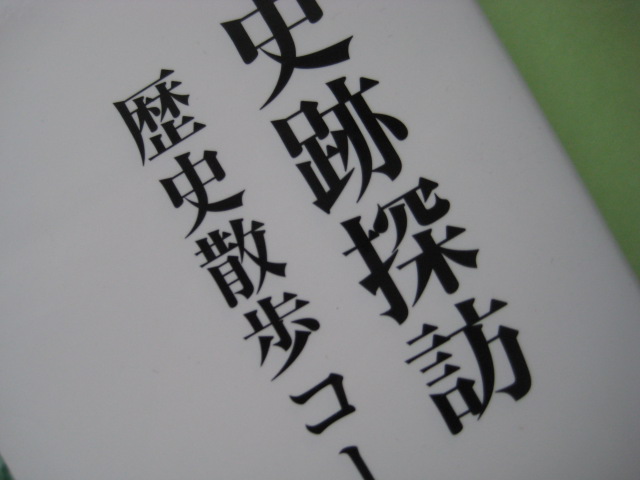 史跡探訪
歴史散歩コー